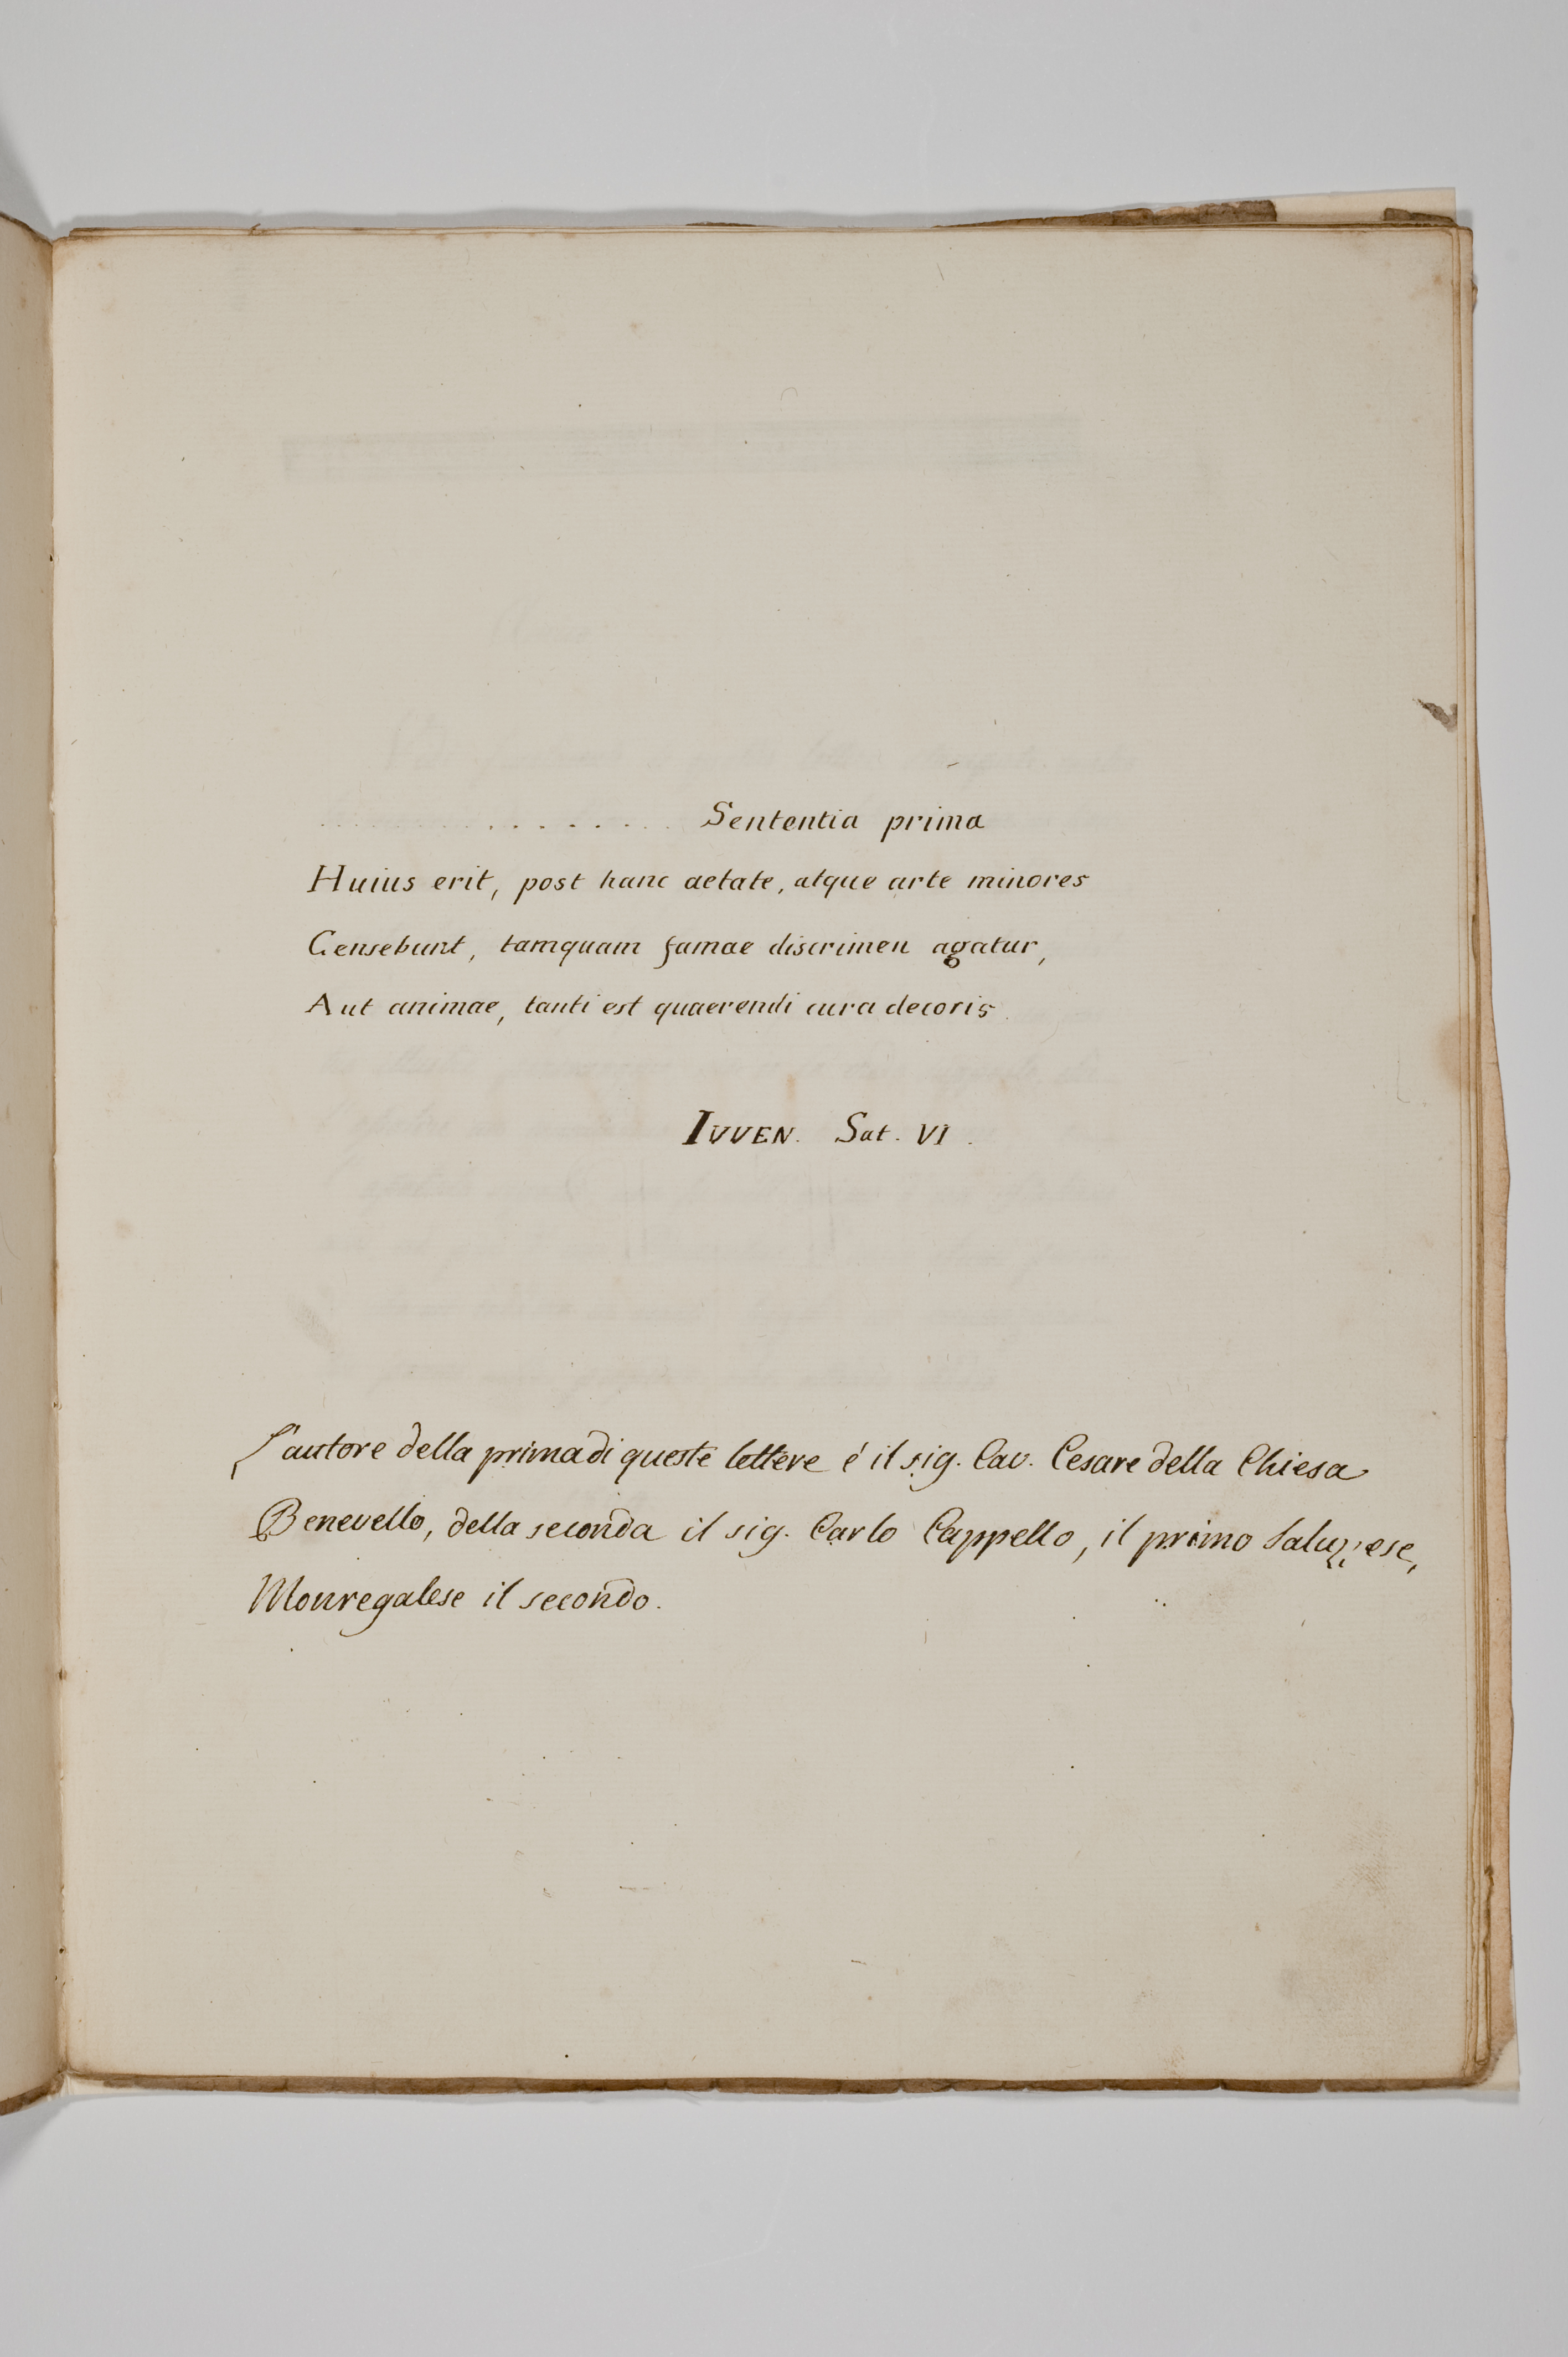 . . . . . . . . . . . . . . Sententia prima
Huius erit, post hanc aetate, atque arte minores
Censebunt, tamquam famae discrimen agatur,
Aut animae, tanti est quaerendi cura decoris.
IVVEN. Sat. VI.
L'autore della prima di queste lettere é il sig. Cav. Cesare della Chiesa
Benevello, della seconda il sig. Carlo Cappello, il primo Saluzzese,
Monregalese il secondo.